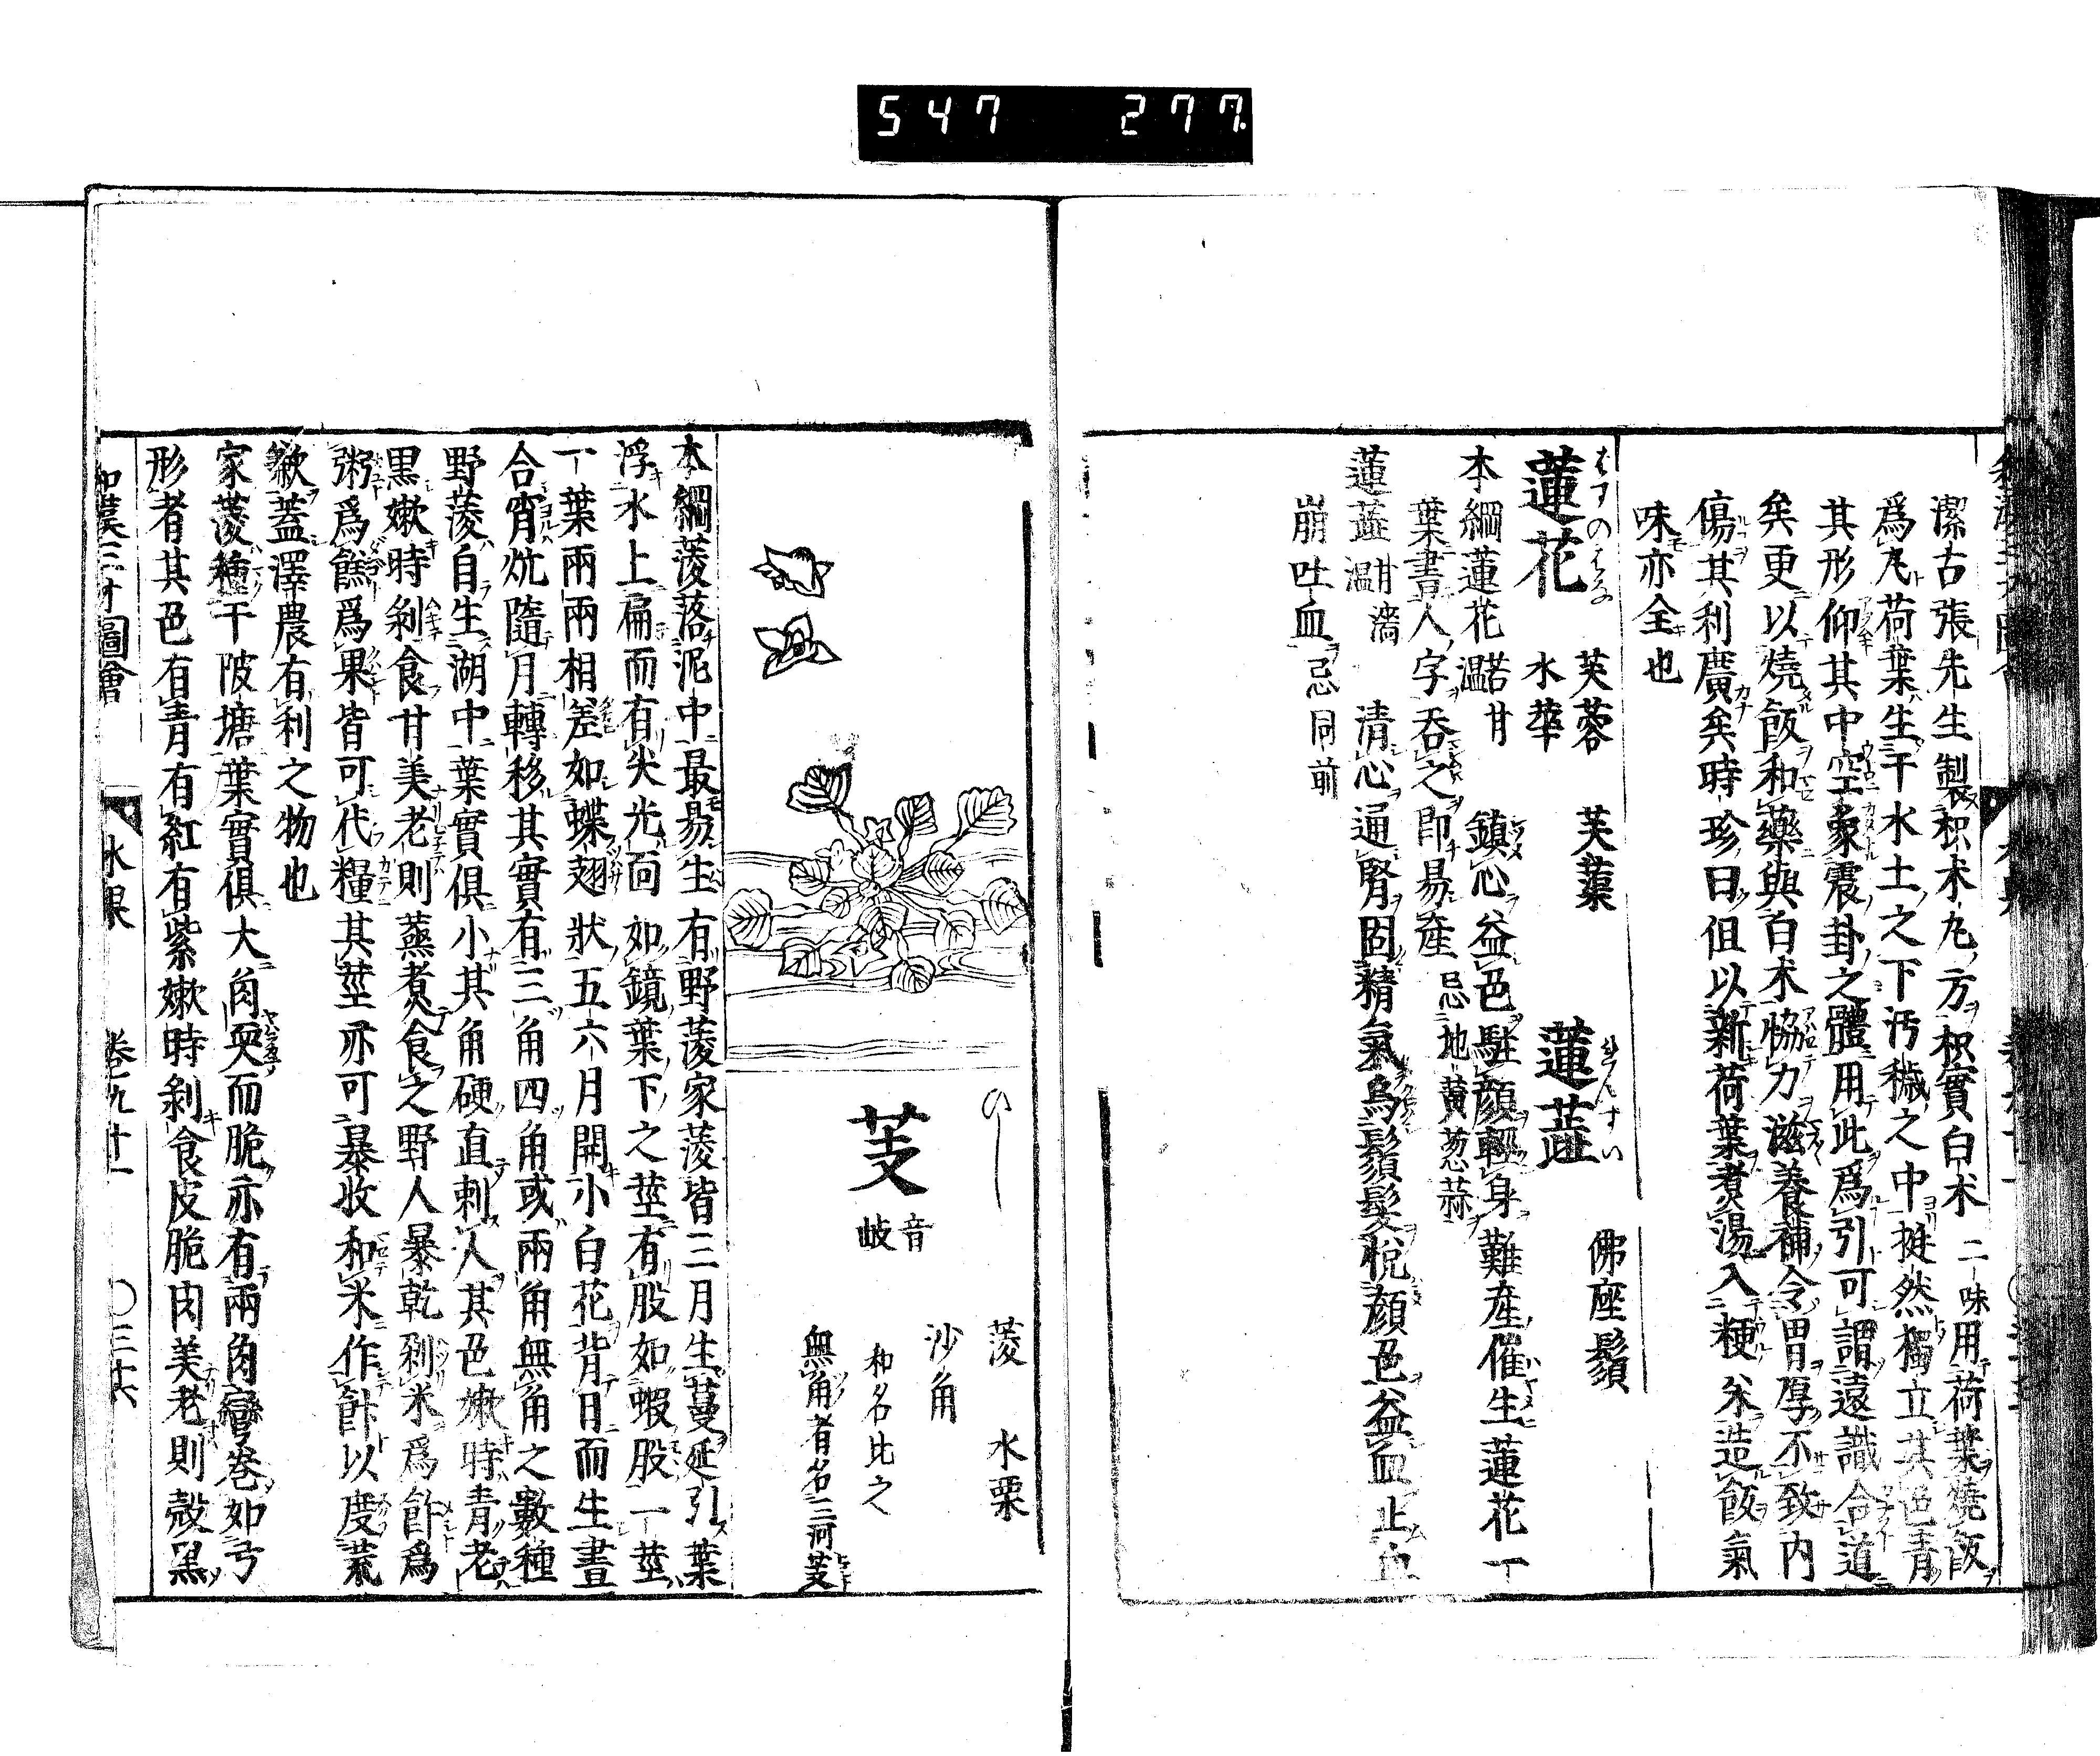 547 277
潔古張先生製枳朮丸方枳實白朮二味用荷葉燒飯
爲丸荷葉生于水土之下汚穢之中挺然獨立其色青
其形仰其中空象震卦之體用此爲引可謂遠識合道
矣更以燒飯和藥與白朮協力滋養補令胃厚不致內
傷其利廣矣時珍曰但以新荷葉煮湯入粳米造飯氣
味亦全也
蓮花 はすのはな 芙蓉 芙蕖 水華
蓮蘂 れんずい 佛座鬚
本綱蓮花苦甘溫 鎮心益色駐顏輕身難產催生蓮花一
葉書人字吞之即易產 忌地黃葱蒜
蓮蘂甘濇溫 清心通腎固精氣烏鬚髮悅顏色益血止血
崩吐血 忌同前
ひし
芰 音岐
菱 水栗
沙角
和名比之
無角者名三河芰
本綱菱落泥中最易生有野菱家菱皆三月生蔓延引葉
浮水上扁而有尖光面如鏡葉下之莖有股如蝦股一莖
一葉兩兩相差如蝶翅狀五六月開小白花背日而生晝
合宵炕隨月轉移其實有三角四角或兩角無角之數種
野菱自生湖中葉實俱小其角硬直刺人其色嫩時青老
黑嫩時剝食甘美老則蒸煮食之野人暴乾剁米爲飯爲
粥爲餻爲果皆可代糧其莖亦可暴收和米作飯以度荒
歉蓋澤農有利之物也
家菱種于陂塘葉實俱大角耎而脆亦有兩角彎卷如弓
形者其色有青有紅有紫嫩時剝食皮脆肉美老則殼黑
和漢三才圖會 水果 卷九十一 〇三十六